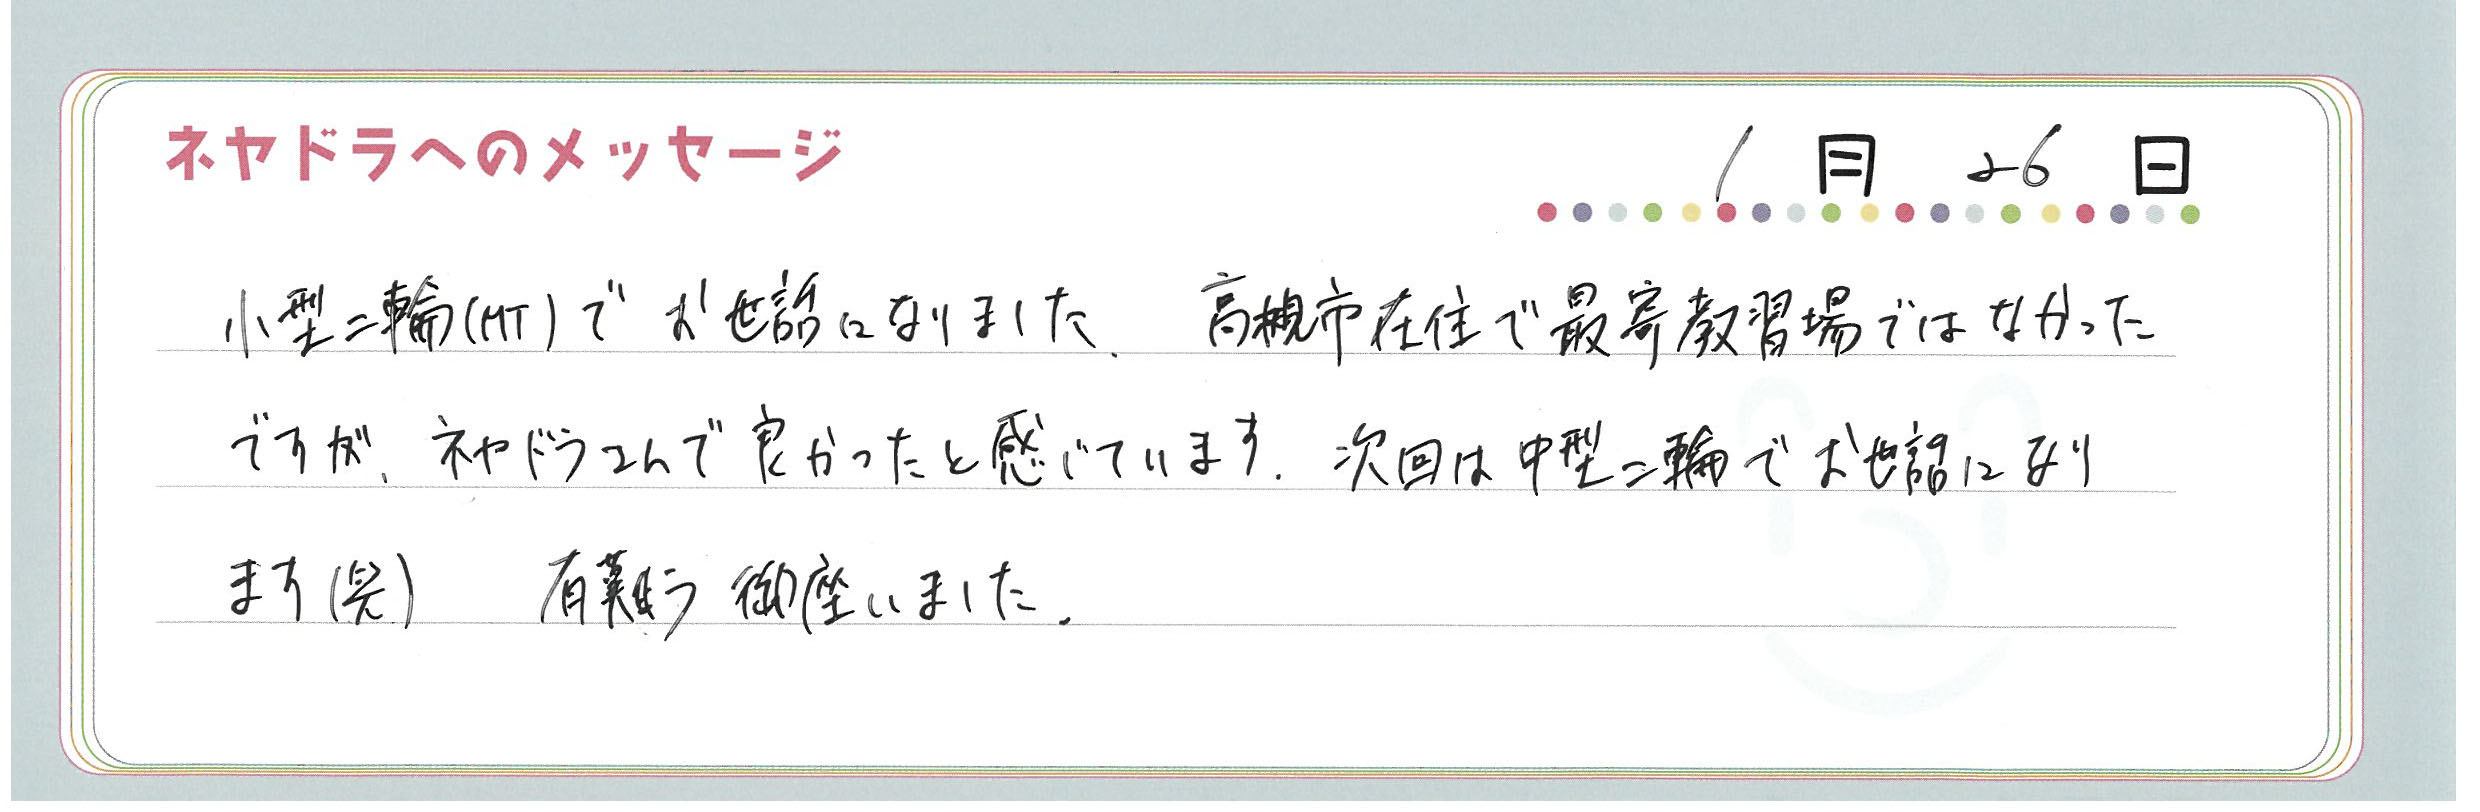 ネヤドラへのメッセージ
1月 26日
小型二輪(MT)でお世話になりました。 高槻市在住で最寄教習場ではなかった
ですが、ネヤドラさんで良かったと感じています。次回は中型二輪でお世話になり
ます(笑) 有難う御座いました。